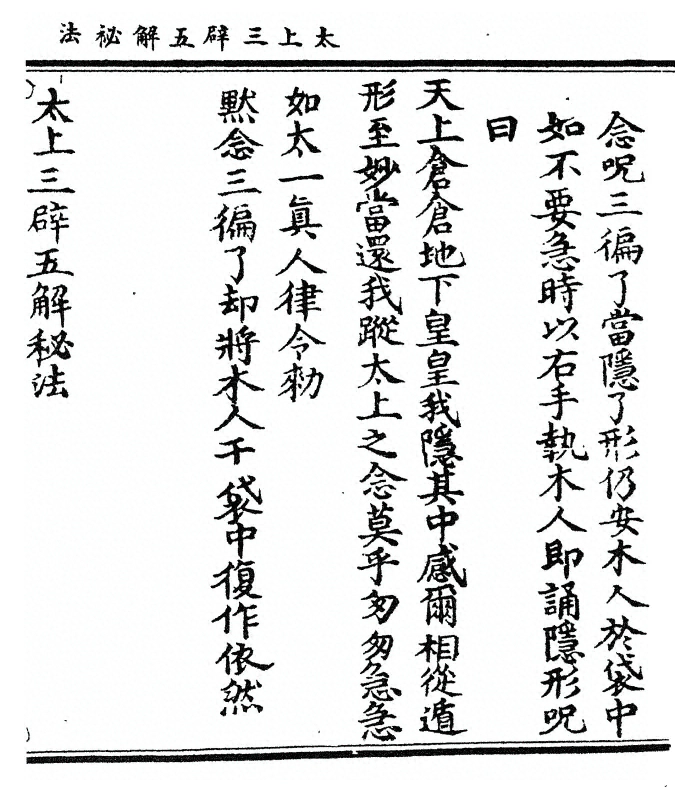 太上三辟五解祕法
念呪三徧了當隱了形仍安木人於袋中
如不要急時以右手執木人即誦隱形呪
曰
天上倉倉地下皇皇我隱其中感爾相從遁
形至妙當還我蹤太上之念莫乎匆匆急急
如太一眞人律令勑
默念三徧了却將木人干袋中復作依然
太上三辟五解秘法